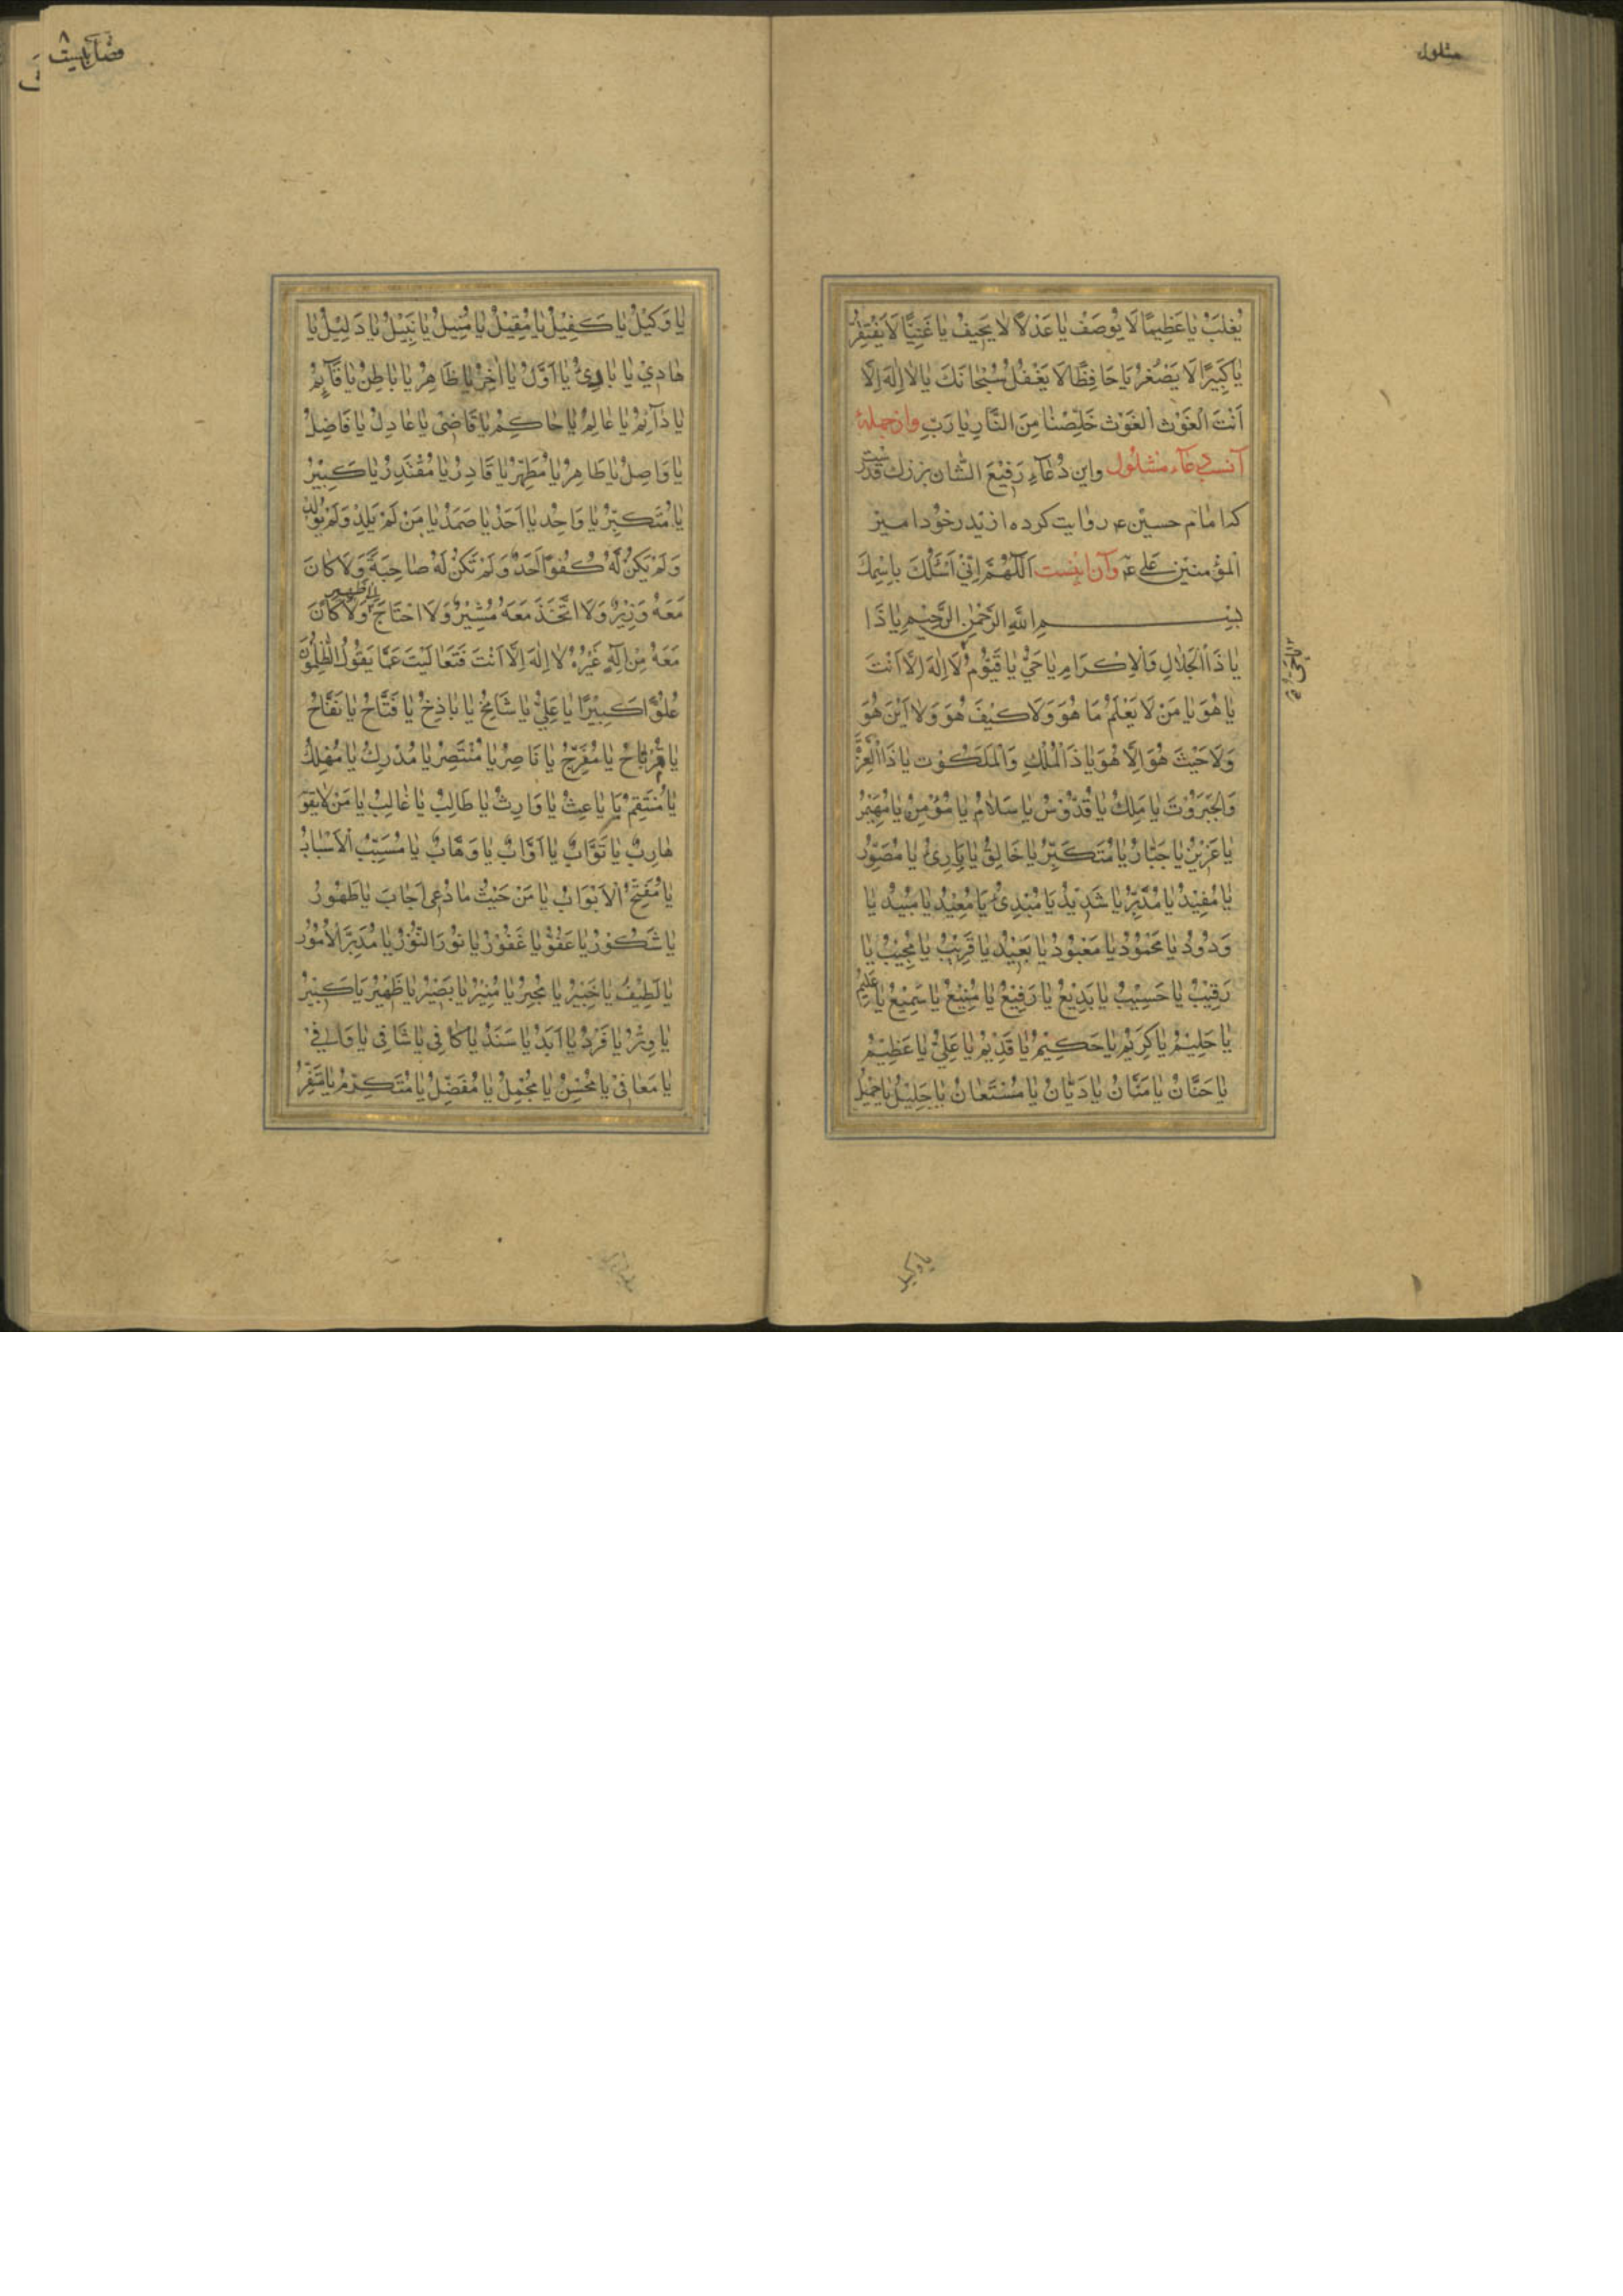 مشلول
يُغْلَبُ يَا عَظِيمًا لَا يُوصَفُ يَا عَدْلًا لَا يَحِيفُ يَا غَنِيًّا لَا يَفْتَقِرُ
يَا كَبِيرًا لَا يَصْغُرُ يَا حَافِظًا لَا يَغْفُلُ سُبْحَانَكَ يَا لَا اِلٰهَ اِلَّا
اَنْتَ الْغَوْث الْغَوْث خَلِّصْنَا مِنَ النَّارِ يَا رَبِّ و از جمله
آنست دعاء مشلول و این دُعَآءِ رَفِیْعَ الشّان بزرك قدر
که امام حسین ع روایت کرده از پدر خود امیر
الْمُؤمنین علی ع و آن اینست اَللّٰهُمَّ اِنِّيْ اَسْئَلُكَ بِاسْمِكَ
بِسْمِ اللّٰهِ الرَّحْمٰنِ الرَّحِيْمِ يَا ذَا
يَا ذَا الْجَلَالِ وَالْاِكْرَامِ يَا حَيُّ يَا قَيُّوْمُ لَا اِلٰهَ اِلَّا اَنْتَ
يَا هُوَ يَا مَنْ لَا يَعْلَمُ مَا هُوَ وَلَا كَيْفَ هُوَ وَلَا اَيْنَ هُوَ
وَلَا حَيْثُ هُوَ اِلَّا هُوَ يَا ذَا الْمُلْكِ وَالْمَلَكُوْت يَا ذَا الْعِزَّةِ
وَالْجَبَرُوْتِ يَا مَلِكُ يَا قُدُّوْسُ يَا سَلَامُ يَا مُؤْمِنُ يَا مُهَيْمِنُ
يَا عَزِيْزُ يَا جَبَّارُ يَا مُتَكَبِّرُ يَا خَالِقُ يَا بَارِئُ يَا مُصَوِّرُ
يَا مُفِيْدُ يَا مُدَبِّرُ يَا شَدِيْدُ يَا مُبْدِئُ يَا مُعِيْدُ يَا مُبِيْدُ يَا
وَدُوْدُ يَا مَحْمُوْدُ يَا مَعْبُوْدُ يَا بَعِيْدُ يَا قَرِيْبُ يَا مُجِيْبُ يَا
رَقِيْبُ يَا حَسِيْبُ يَا بَدِيْعُ يَا رَفِيْعُ يَا مَنِيْعُ يَا سَمِيْعُ يَا عَلِيْمُ
يَا حَلِيْمُ يَا كَرِيْمُ يَا حَكِيْمُ يَا قَدِيْمُ يَا عَلِيُّ يَا عَظِيْمُ
يَا حَنَّانُ يَا مَنَّانُ يَا دَيَّانُ يَا مُسْتَعَانُ يَا جَلِيْلُ يَا جَمِيْلُ
يا وكيل
يَا وَكِيْلُ يَا كَفِيْلُ يَا مُقِيْلُ يَا مُنِيْلُ يَا نَبِيْلُ يَا دَلِيْلُ يَا
هَادِيْ يَا بَادِئُ يَا اَوَّلُ يَا اٰخِرُ يَا ظَاهِرُ يَا بَاطِنُ يَا قَآئِمُ
يَا دَآئِمُ يَا عَالِمُ يَا حَاكِمُ يَا قَاضِيْ يَا عَادِلُ يَا فَاضِلُ
يَا وَاصِلُ يَا طَاهِرُ يَا مُطَهِّرُ يَا قَادِرُ يَا مُقْتَدِرُ يَا كَبِيْرُ
يَا مُتَكَبِّرُ يَا وَاحِدُ يَا اَحَدُ يَا صَمَدُ يَا مَنْ لَمْ يَلِدْ وَلَمْ يُوْلَدْ
وَلَمْ يَكُنْ لَّهُ كُفُوًا اَحَدٌ وَلَمْ تَكُنْ لَهُ صَاحِبَةٌ وَلَا كَانَ
مَعَهُ وَزِيْرٌ وَلَا اتَّخَذَ مَعَهُ مُشِيْرٌ وَلَا احْتَاجَ اِلٰى ظَهِيْرٍ وَلَا كَانَ
مَعَهُ مِنْ اِلٰهٍ غَيْرُهُ لَا اِلٰهَ اِلَّا اَنْتَ فَتَعَالَيْتَ عَمَّا يَقُوْلُ الظّٰلِمُوْنَ
عُلُوًّا كَبِيْرًا يَا عَلِيُّ يَا شَامِخُ يَا بَاذِخُ يَا فَتَّاحُ يَا نَفَّاحُ
يَا مُرْتَاحُ يَا مُفَرِّجُ يَا نَاصِرُ يَا مُنْتَصِرُ يَا مُدْرِكُ يَا مُهْلِكُ
يَا مُنْتَقِمُ يَا بَاعِثُ يَا وَارِثُ يَا طَالِبُ يَا غَالِبُ يَا مَنْ لَا يَفُوْ
هَارِبٌ يَا تَوَّابُ يَا اَوَّابُ يَا وَهَّابُ يَا مُسَبِّبَ الْاَسْبَابِ
يَا مُفَتِّحَ الْاَبْوَابِ يَا مَنْ حَيْثُ مَا دُعِيَ اَجَابَ يَا طَهُوْرُ
يَا شَكُوْرُ يَا عَفُوُّ يَا غَفُوْرُ يَا نُوْرَ النُّوْرِ يَا مُدَبِّرَ الْاُمُوْرِ
يَا لَطِيْفُ يَا خَبِيْرُ يَا مُجِيْرُ يَا مُنِيْرُ يَا بَصِيْرُ يَا ظَهِيْرُ يَا كَبِيْرُ
يَا وِتْرُ يَا فَرْدُ يَا اَبَدُ يَا سَنَدُ يَا كَافِيْ يَا شَافِيْ يَا وَافِيْ
يَا مُعَافِيْ يَا مُحْسِنُ يَا مُجْمِلُ يَا مُفَضِّلُ يَا مُتَكَرِّمُ يَا مُتَفَرِّ